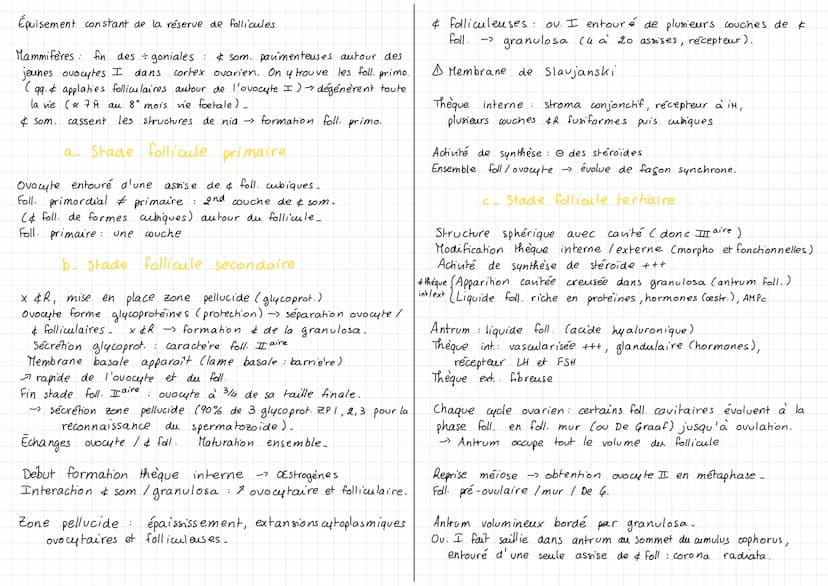 Épuisement constant de la réserve de follicules
Mammifères : fin des ÷ goniales : ¢ som. pavimenteuses autour des
jeunes ovocytes I dans cortex ovarien. On y trouve les foll. primo.
(qq. ¢ applaties folliculaires autour de l'ovocyte I) → dégénèrent toute
la vie (≈ 7M au 8° mois vie foetale)_
¢ som. cassent les structures de nid → formation foll. primo.
a_ Stade follicule primaire
Ovocyte entouré d'une assise de ¢ foll. cubiques_
Foll. primordial ≠ primaire : 2nd couche de ¢ som.
(¢ foll. de formes cubiques) autour du follicule_
Foll. primaire : une couche
b_ Stade follicule secondaire
x ¢R, mise en place zone pellucide (glycoprot.)
Ovocyte forme glycoprotéines (protection) → séparation ovocyte /
¢ folliculaires_ x ¢R → formation ¢ de la granulosa_
Sécrétion glycoprot. : caractère foll. IIaire
Membrane basale apparaît (lame basale : barrière)
↗ rapide de l'ovocyte et du foll.
Fin stade foll. IIaire : ovocyte à 3/4 de sa taille finale.
→ sécrétion zone pellucide (90% de 3 glycoprot. ZP1, 2, 3 pour la
reconnaissance du spermatozoïde)_
Échanges ovocyte / ¢ foll. Maturation ensemble_
Début formation thèque interne → Œstrogènes
Interaction ¢ som / granulosa : ↗ ovocytaire et folliculaire.
Zone pellucide : épaississement, extansions cytoplasmiques
ovocytaires et folliculeuses_
¢ folliculeuses : ov. I entouré de plusieurs couches de ¢
foll. → granulosa (4 à 20 assises, récepteur).
⚠ Membrane de Slavjanski
Thèque interne : stroma conjonctif, récepteur à iH,
plusieurs couches ¢R fusiformes puis cubiques
Activité de synthèse : ⊖ des stéroïdes
Ensemble foll / ovocyte → évolue de façon synchrone.
c_ Stade follicule tertiaire
Structure sphérique avec cavité (donc IIIaire)
Modification thèque interne / externe (morpho et fonctionnelles)
Activité de synthèse de stéroïde +++
¢ thèque int/ext { Apparition cavitée creusée dans granulosa (antrum foll.)
Liquide foll. riche en protéines, hormones (œstr.), AMPc
Antrum : liquide foll. (acide hyaluronique)
Thèque int. : vascularisée +++, glandulaire (hormones),
récepteur LH et FSH
Thèque ext. fibreuse
Chaque cycle ovarien : certains foll. cavitaires évoluent à la
phase foll. en foll. mur (ou De Graaf) jusqu'à ovulation.
→ Antrum occupe tout le volume du follicule
Reprise méiose → obtention ovocyte II en métaphase_
Foll. pré-ovulaire / mur / De G.
Antrum volumineux bordé par granulosa_
Ov. I fait saillie dans antrum au sommet du cumulus oophorus,
entouré d'une seule assise de ¢ foll : corona radiata.